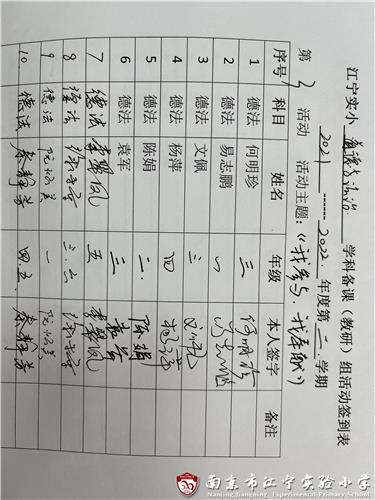 江宁实小 道德与法治 学科备课（教研）组活动签到表
2021 ------ 2022 年度第 二 学期
第 3 活动 活动主题：《我参与，我奉献》
序号 科目 姓名 年级 本人签字 备注
1 德法 何明珍 三 何明珍
2 德法 易志鹏 一 易志鹏
3 德法 文佩 三 文佩
4 德法 杨萍 四 杨萍
5 德法 陈娟 二 陈娟
6 德法 袁军 三 袁军
7 德法 李翠凤 五 李翠凤
8 德法 三.六
9 德法 阮怀美 一 阮怀美
10. 德法 秦静芳 四.五 秦静芳
南京市江宁实验小学